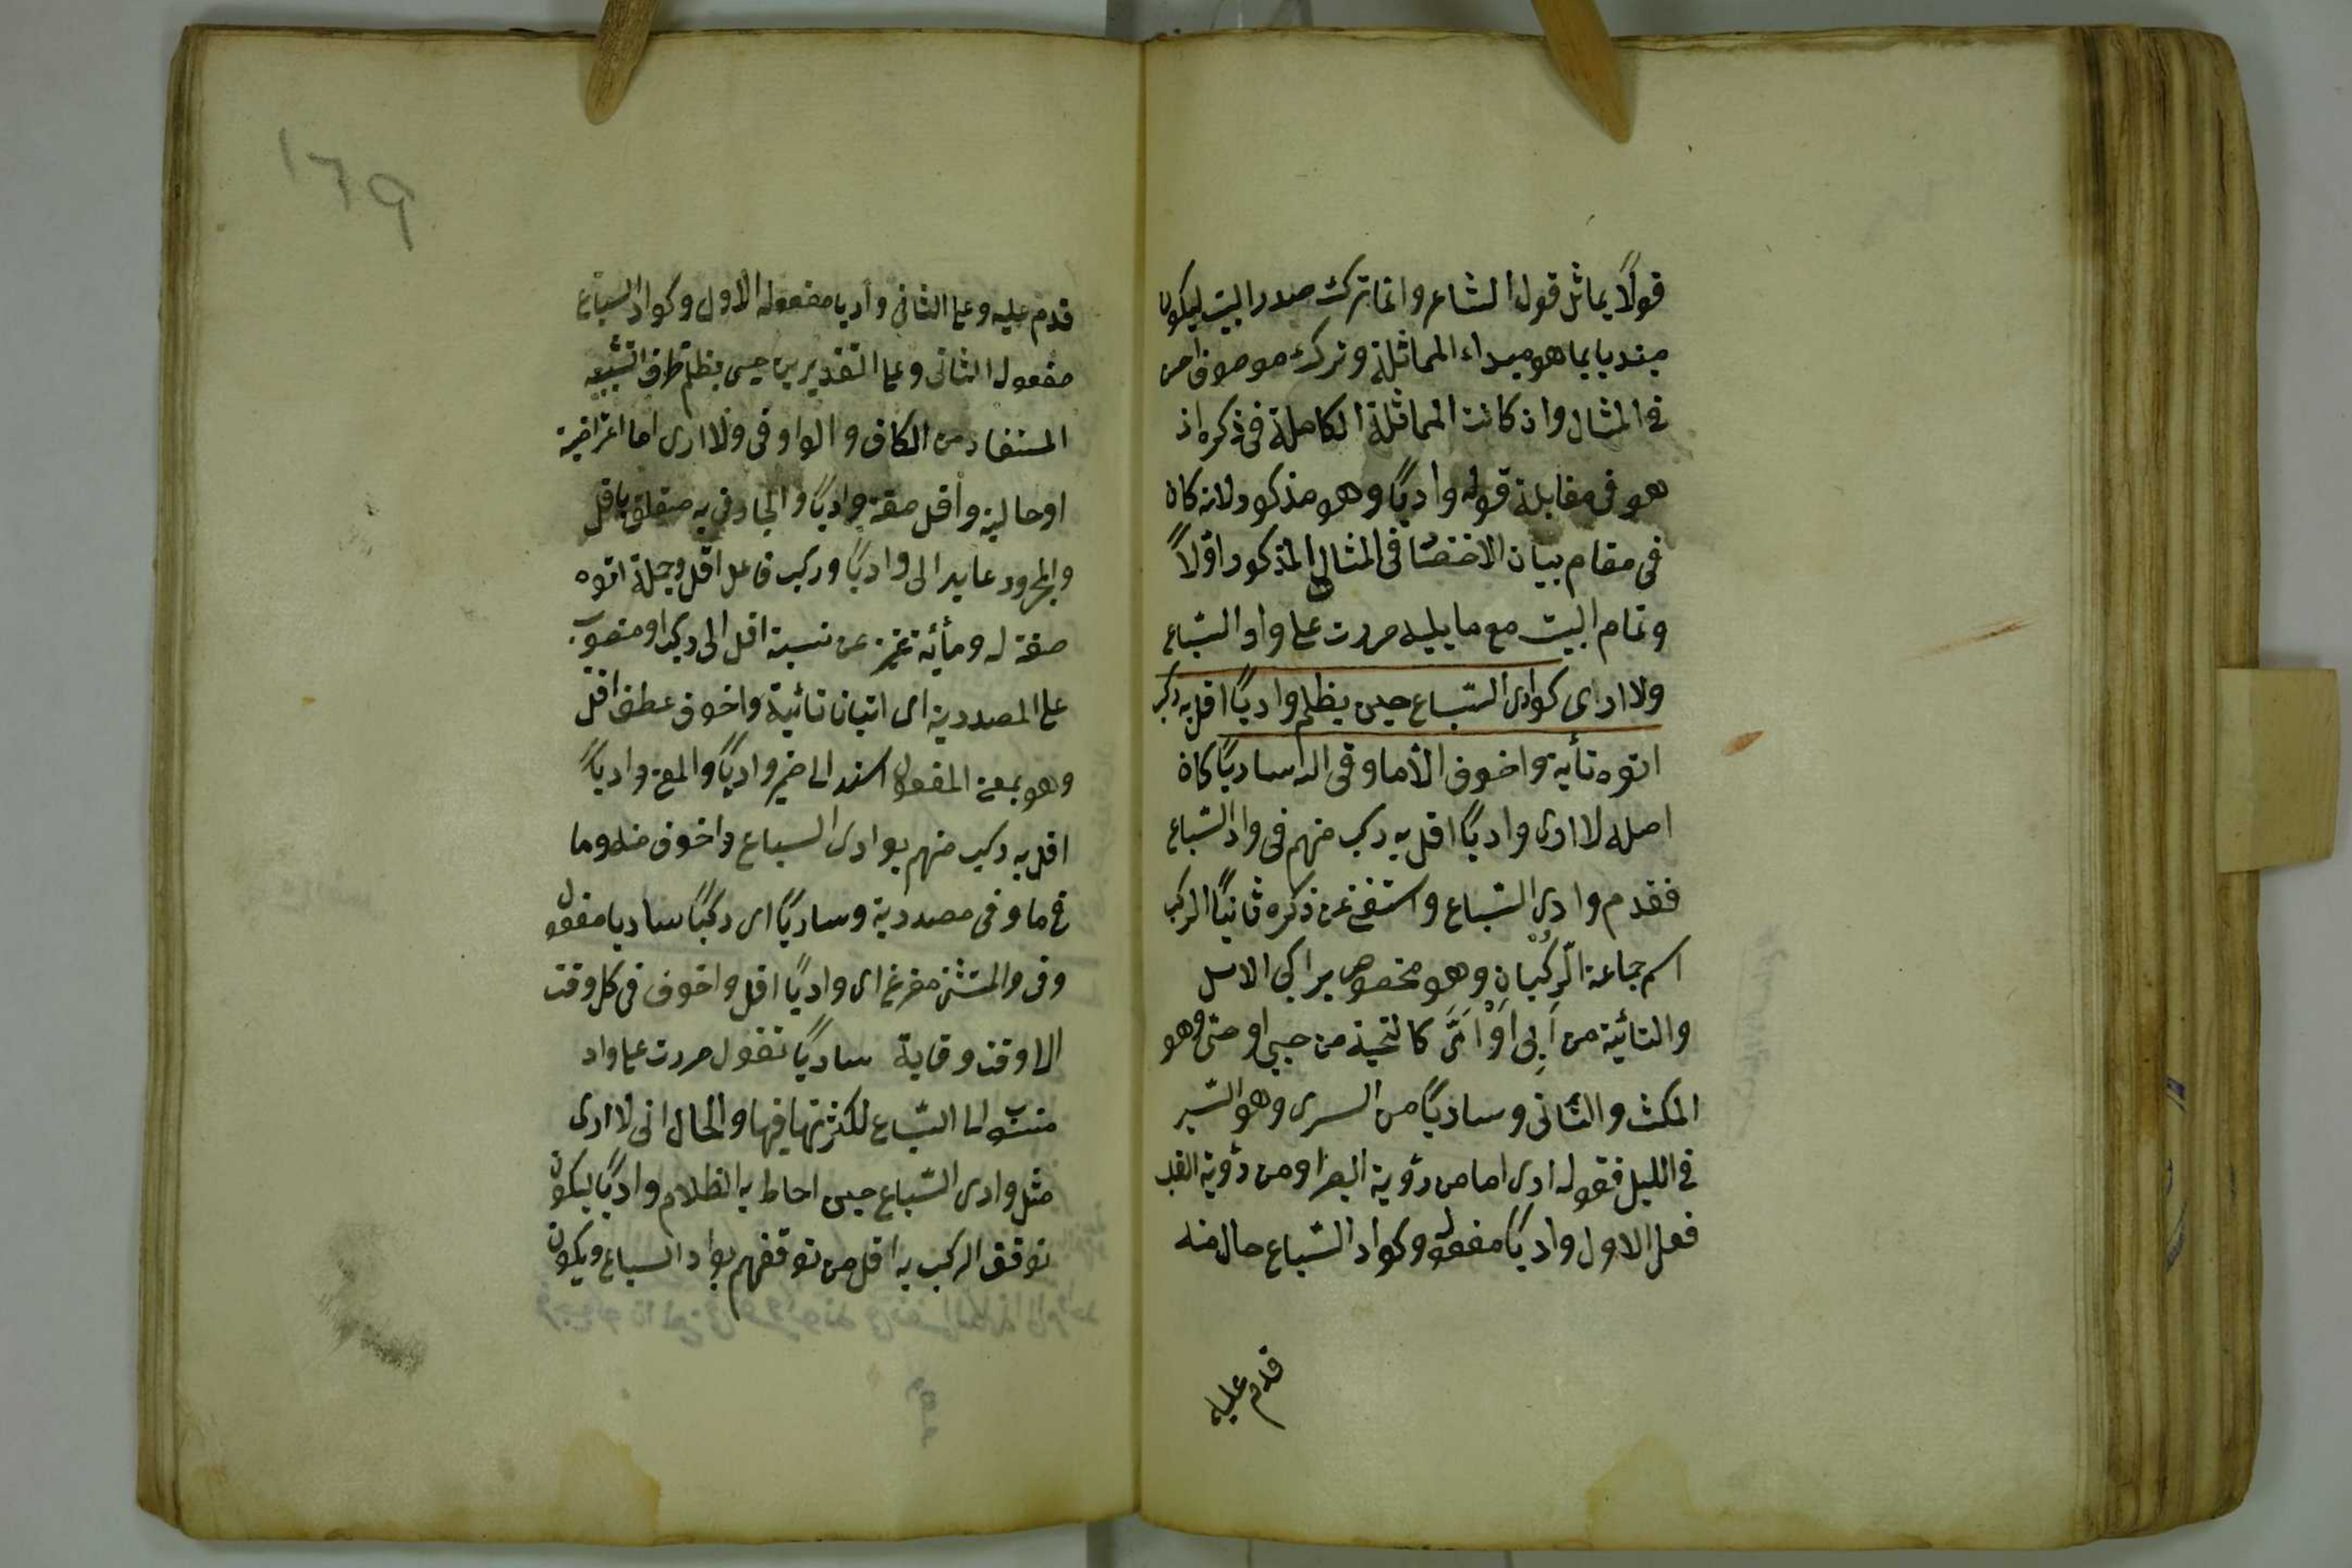 قولاً يماثل قول الشاعر وانما تركت صدر البيت ليكون
مبتديا بما هو مبداء المماثلة وتركت موصوف احسن
في المثال وان كانت المماثلة الكاملة في ذكره اذ
هو في مقابلة قوله واديًا وهو مذكور لانه كان
في مقام بيان الاختصا في المثال المذكور اوّلاً
وتمام البيت مع ما يليه مررت على واد السّباع
ولا ارى كوادى السّباع حين يظلم واديًا اقل به ركب
اتوه تأية واخوف الا ما وقى الله ساريًا كان
اصله لا ارى واديًا اقل به ركب منهم في واد السّباع
فقدم وادى السّباع واستغنى عن ذكره ثانيًا الركب
اسم جماعة الرّكْبان وهو مخصوص براكى الابل
والتائية من أيى او اَيَّى كالتحية من حيى او حيّى وهو
المكث والتأنى وساريًا من السرى وهو السّير
في الليل فقوله ارى اما من رؤية البصر او من رؤية القلب
فعلى الاول واديًا مفعوله وكواد السّباع حال منه
قدم عليه
١٦٩
قدم عليه وعلى الثانى واديا مفعوله الاول وكواد السباع
مفعوله الثانى وعلى التقديرين حين يظلم ظرف التشبيه
المستفاد من الكاف والواو في ولا ارى اما اعتراضية
او حالية واقل صفة واديًا والجار في به متعلق باقل
والمجرور عايد الى واديًا وركب فاعل اقل وجملة اتوه
صفة له وتأئية تميز عن نسبة اقل الى ركب او منصوب
على المصدرية اى اتيان تائية واخوف عطف اقل
وهو بمعنى المفعول اسند الى ضمير واديًا والمعنى واديًا
اقل به ركب منهم بوادى السباع واخوف منه وما
في ما وقى مصدرية وساريًا اى ركبًا ساريا مفعول
وقى والمستثنى مفرغ اى واديًا اقل واخوف في كل وقت
الا وقت وقاية ساريًا تقول مررت على واد
منسوب الى السّباع لكثرتها فيها والحال انى لا ارى
مثل وادى السّباع حين احاط به الظلام واديًا ليكون
توقف الركب به اقل من توقفهم بواد السباع ويكون